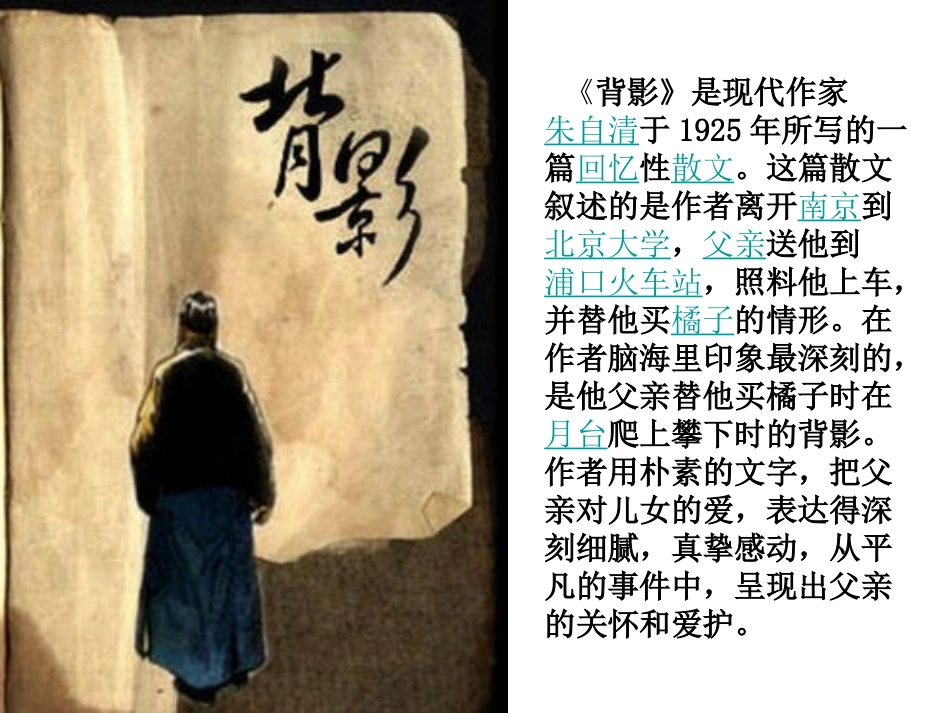 背影
《背影》是现代作家
朱自清于 1925 年所写的一
篇回忆性散文。这篇散文
叙述的是作者离开南京到
北京大学，父亲送他到
浦口火车站，照料他上车，
并替他买橘子的情形。在
作者脑海里印象最深刻的，
是他父亲替他买橘子时在
月台爬上攀下时的背影。
作者用朴素的文字，把父
亲对儿女的爱，表达得深
刻细腻，真挚感动，从平
凡的事件中，呈现出父亲
的关怀和爱护。